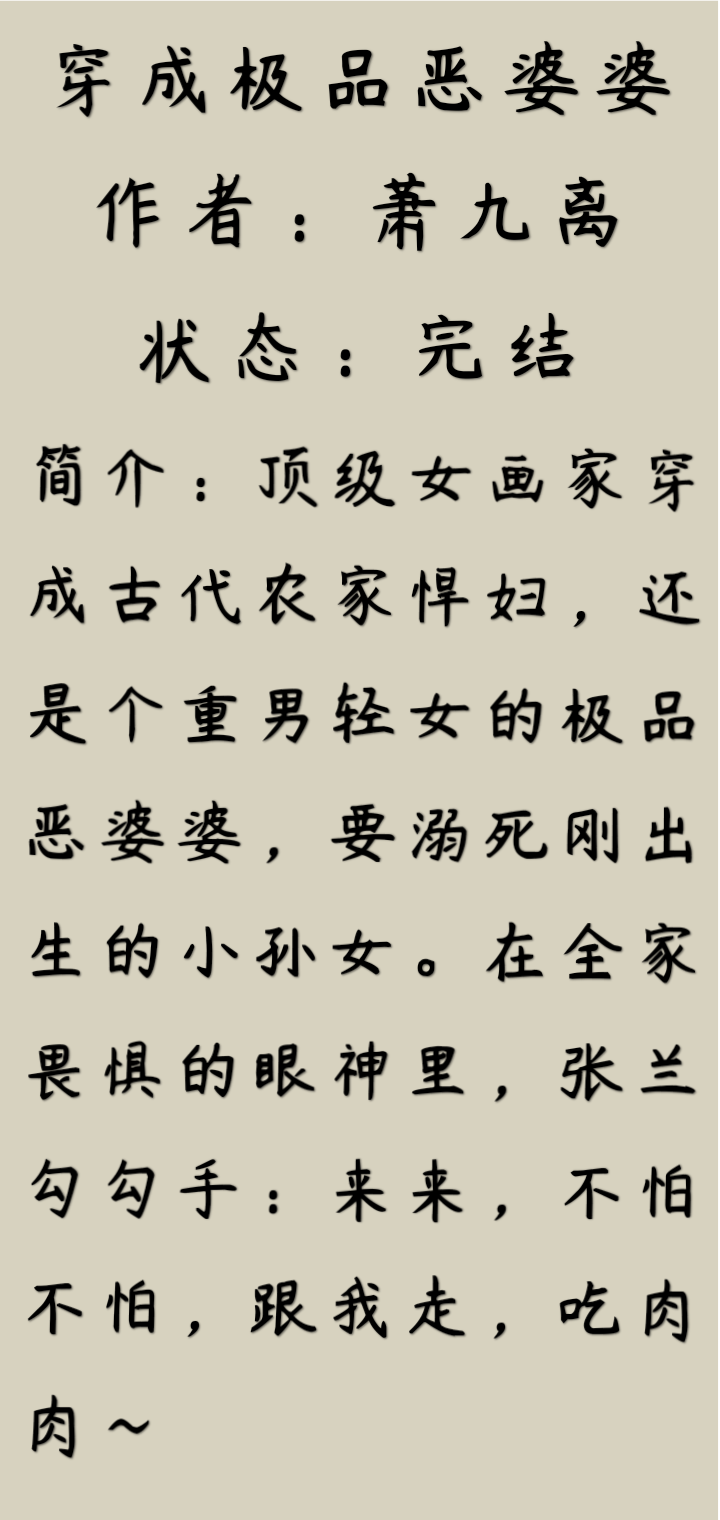 穿成极品恶婆婆
作者：萧九离
状态：完结
简介：顶级女画家穿
成古代农家悍妇，还
是个重男轻女的极品
恶婆婆，要溺死刚出
生的小孙女。在全家
畏惧的眼神里，张兰
勾勾手：来来，不怕
不怕，跟我走，吃肉
肉～